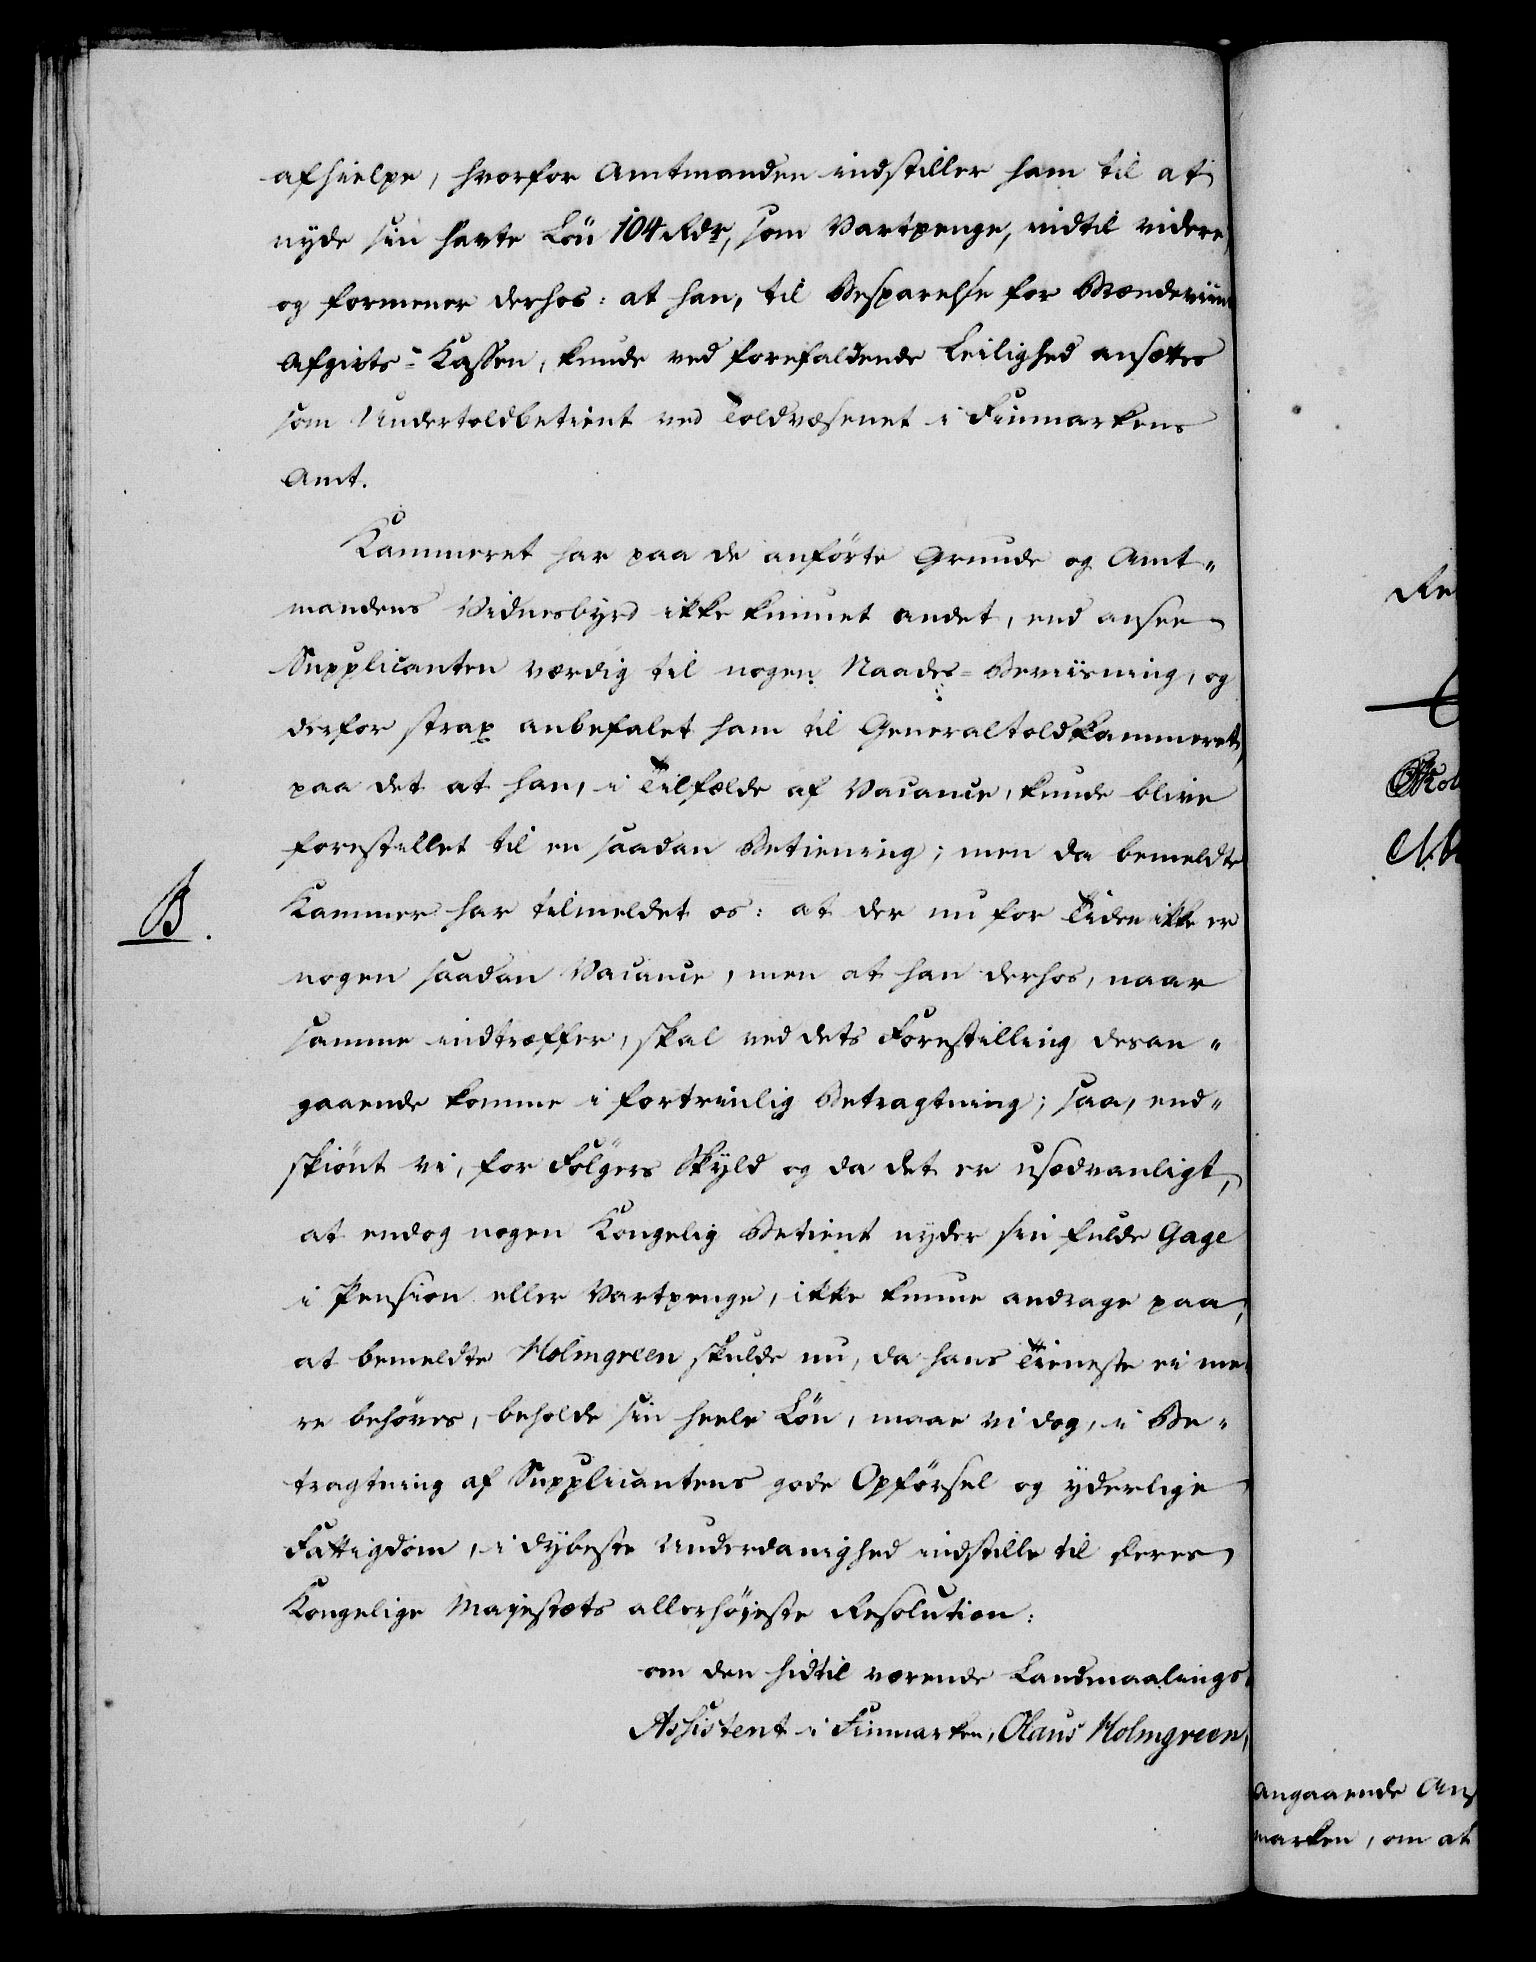 afhielpe, hvorfor Amtmanden indstiller ham til at
nyde sin havte Lön 104 Rdr, som Vartpenge, indtil videre,
og formener derhos: at han, til Besparelse for Brændeviins
Afgivts-Kassen, kunde ved forefaldende Leilighed ansættes
som Undertoldbetient ved Toldvæsenet i Finmarkens
Amt.
Kammeret har paa de anförte Grunde og Amt-
mandens Vidnesbyrd ikke kunnet andet, end ansee
Supplicanten værdig til nogen Naades-Beviisning, og
derfor strax anbefalet ham til Generaltoldkammeret,
paa det at han, i Tilfælde af Vacance, kunde blive
forestillet til en saadan Betiening; men da bemeldte
B.
Kammer har tilmeldet os: at der nu for Tiden ikke er
nogen saadan Vacance, men at han derhos, naar
samme indtræffer, skal ved dets Forestilling desan-
gaaende komme i fortrinlig Betragtning; saa, end-
skiönt vi, for Fölgers Skyld og da det er usædvanligt,
at endog nogen Kongelig Betient nyder sin fulde Gage
i Pension eller Vartpenge, ikke kunne andrage paa,
at bemeldte Holmgreen skulde nu, da hans Tieneste ei me-
re behöves, beholde sin heele Lön, maae vi dog, i Be-
tragtning af Supplicantens gode Opförsel og yderlige
Fattigdom, i dybeste Underdanighed indstille til Deres
Kongelige Majestæts allerhöjeste Resolution:
om den hidtil værende Landmaalings-
Assistent i Finmarken, Olaus Holmgreen,
Re
angaaende Ans
marken, om at